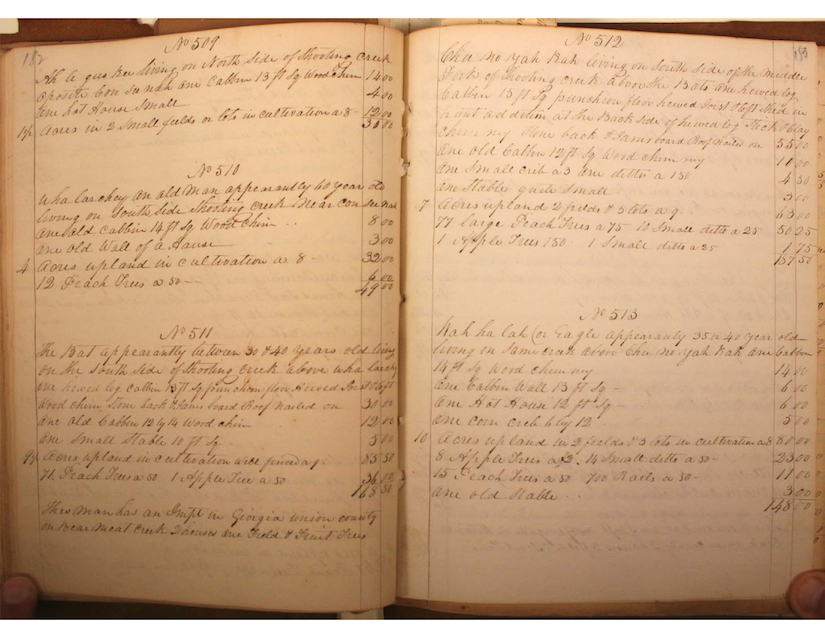 182
No 509
Ah le gus kee living on North Side of Shooting Creek
oposite Con See nah one Cabbin 13 ft Sq Wood Chim 14 00
one hot House Small 4 00
1½ Acres in 2 Small fields or lots in cultivation a 8 — 12 00
30 00
No 510
Wha lar chey an old man appearantly 60 year old
living on South Side Shooting Creek Near Con see nah
one old cabbin 14 ft Sq Wood Chim .. 8 00
one old Wall of a House 3 00
4 Acres upland in cultivation a 8 — 32 00
12 Peach Trees a 50 — 6 00
49 00
No 511
The Bat appearantly between 30 & 40 Years old living
on the South Side of Shooting creek above wha larchy
one hewed log cabbin 15 ft Sq puncheon floor Hewed Joist
Wood chim, Stone back & Jams board Roof nailed on 30 00
one old Cabbin 12 by 14 Wood chim 12 00
one Small Stable 10 ft Sq 5 00
9½ Acres upland in cultivation well fenced a 9 . 85 50
71 Peach Trees a 50 1 Apple Tree a 50 36 00
168 50
This man has an Impt in Georgia union county
on Creek Discuses one Field & Fruit Trees
183
No 512
Chu no yah kah living on South Side of the middle
Fork of Shooting creek above the Bats one hewed log
Cabbin 15 ft Sq puncheon floor hewed Joist Shed in
addition at the Back Side of hewed log Stick & Clay
chim ny Stone back & Jams board Roof Nailed on 55 00
one old Cabbin 12 ft Sq Wood chim ny 10 00
one Small crib a 3 one ditto a 150 4 50
one Stable quite Small 3 00
7 Acres upland 2 fields & 3 lots a 9 . 63 00
77 large Peach Trees a 75 10 Small ditto a 25 50 25
1 Apple Trees 150 1 Small ditto a 25 1 75
187 50
No 513
Kah ha lah (or Eagle appearantly 35 or 40 year old
living on Same creek above Chu no yah kah one Cabbin
14 ft Sq Wood chim ny 14 00
one Cabbin Wall 13 ft Sq — 6 00
one Hot House 12 ft Sq — 6 00
one corn crib 6 by 12 . 5 00
10 Acres upland in 2 fields & 3 lots in cultivation a 8 80 00
8 Apple Trees a 2 . 14 Small ditto a 50 — 23 00
15 Peach Trees a 50 700 Rails a 50 — 11 00
one old Stable . . 3 00
148 00